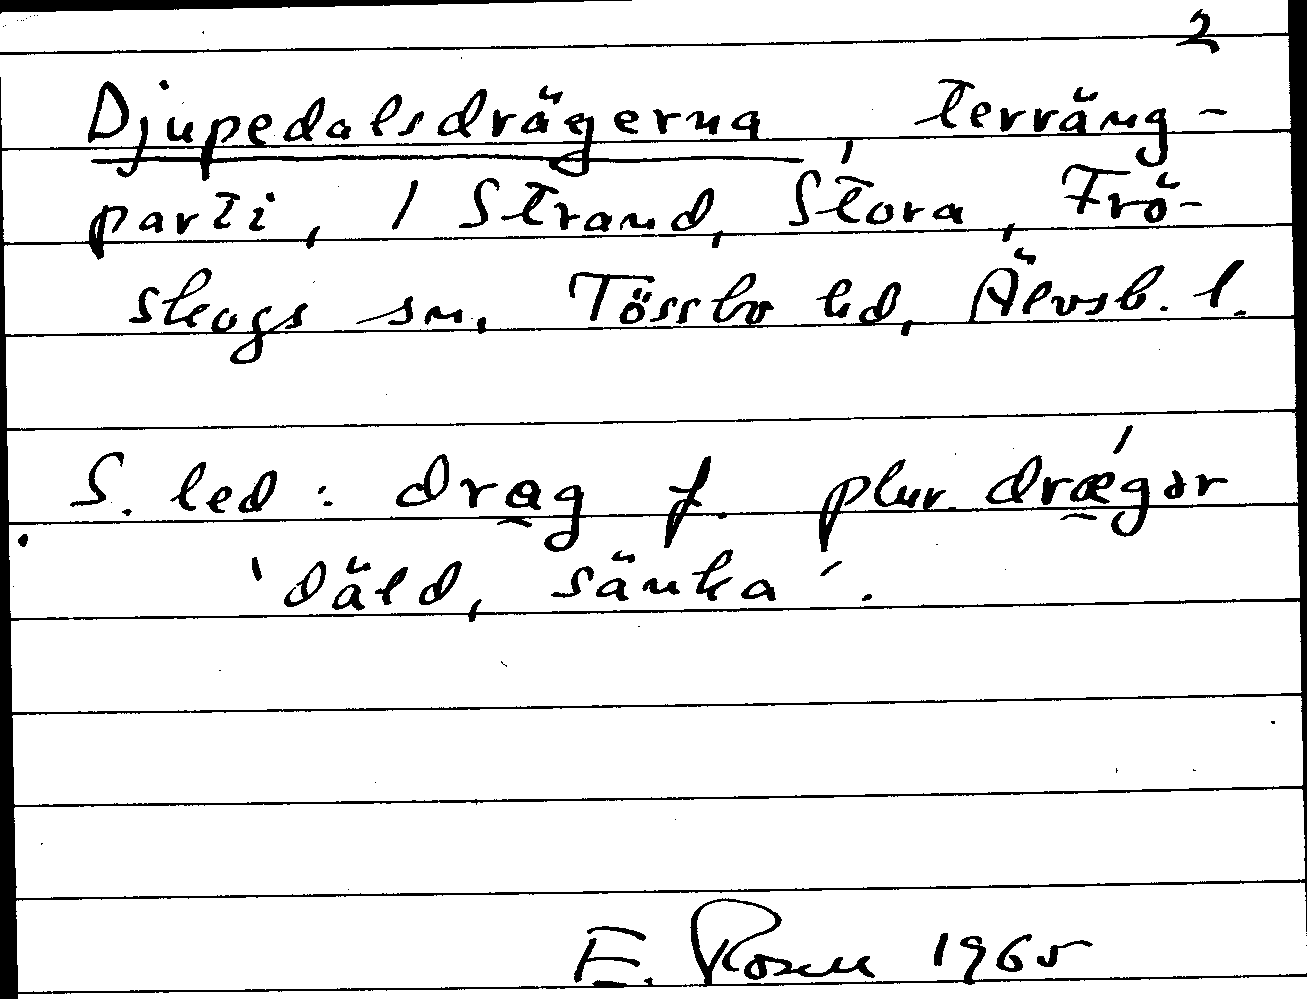 2
Djupedalsdrägerna, terräng-
parti, / Strand, Stora, Frö-
skogs sn. Tössbo hd, Älvsb. l.
S. led: drag f. plur. drǽgər
'däld, sänka'.
E. Rosen 1965